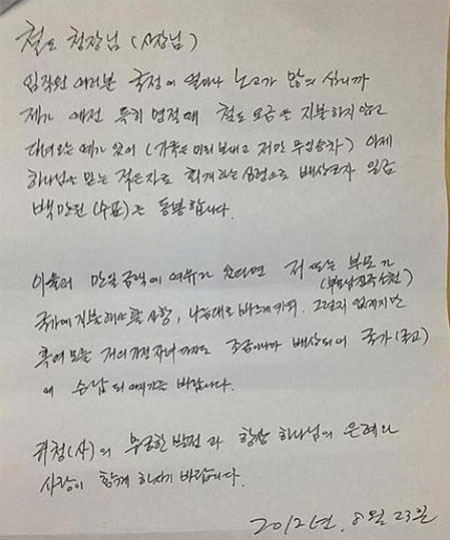 철도 청장님 (사장님)
임직원 여러분 국정에 얼마나 노고가 많으십니까
제가 예전 특히 명절때 철도 요금을 지불하지 않고
다녀오는 예가 있어 (가족은 미리보내고 저만 무임승차) 이제
하나님을 믿는 적은자로 회개하는 심령으로 배상코자 일금
백만원 (수표)을 동봉합니다.
이울러 만일 금액에 여유가 있다면 저 또는 부모가
국가에 지불해야 할 사항, 나름대로 바르게 커, 그런지 없겠지만
혹여 모를 저의 가정 자녀까지도 조금이나마 배상되어 국가(국고)
에 수납 되어지기를 바랍니다.
귀청(사)의 무궁한 발전과 항상 하나님의 은혜와
사랑이 함께 하시기 바랍니다.
2012년, 8월 23일